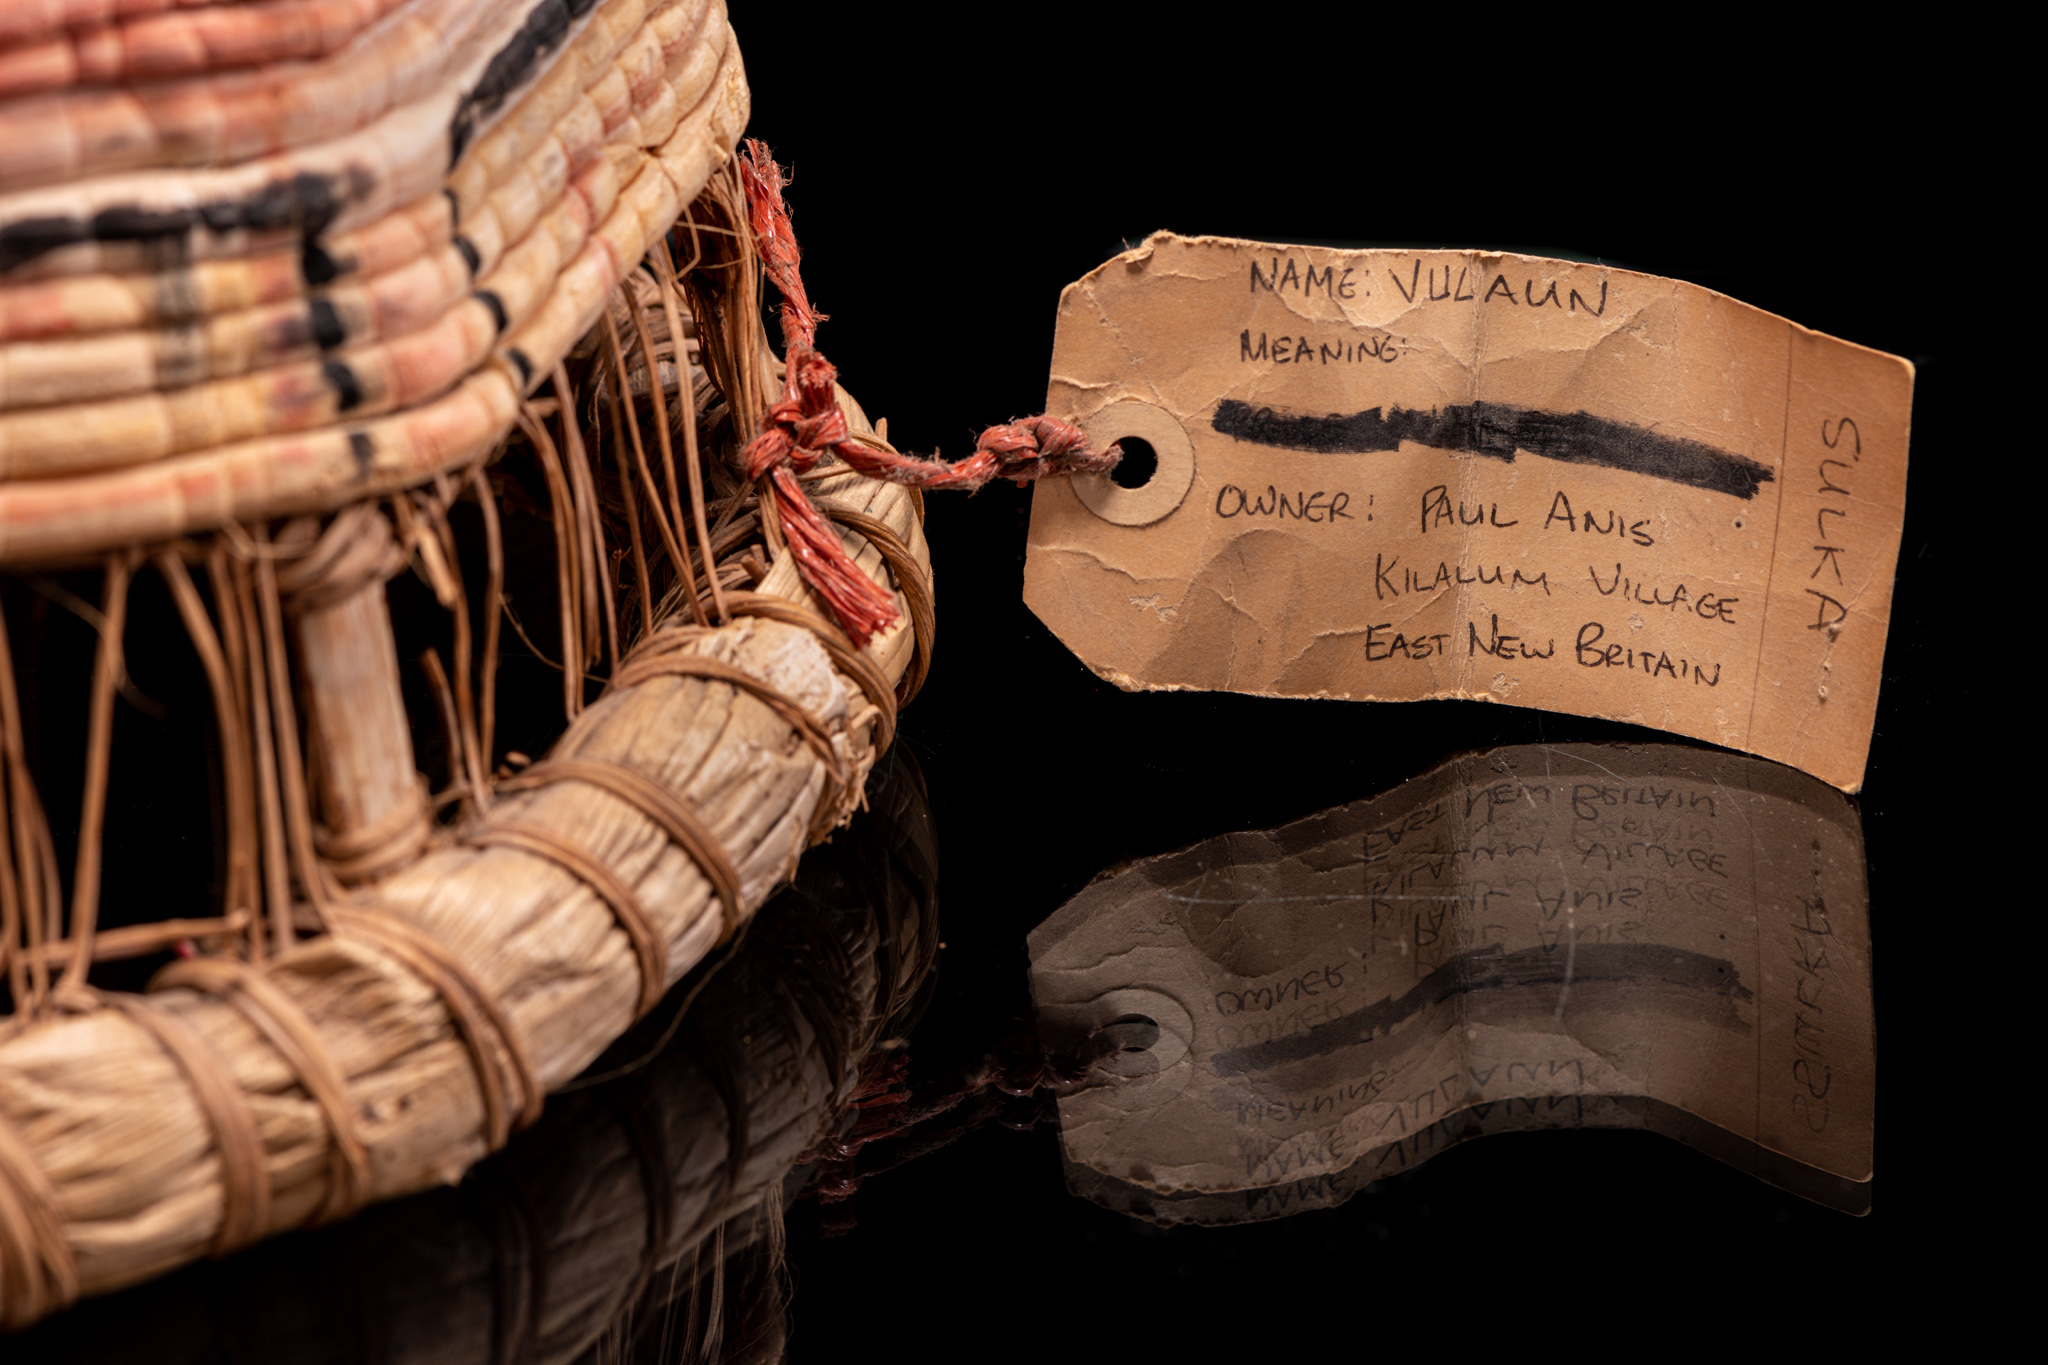 NAME: VULAUN
MEANING:
OWNER: PAUL ANIS
KILALUM VILLAGE
EAST NEW BRITAIN
SULKA